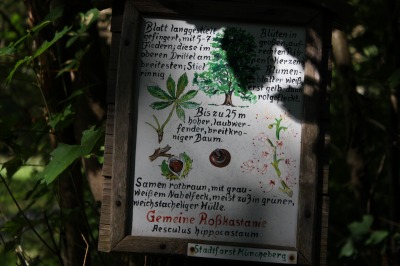 Blatt langgestielt
gefingert, mit 5-7
Fiedern; diese im
oberen Drittel am
breitesten; Stiel
rinnig
Blüten in
großen auf-
rechten
kerzen;
Blumen-
blätter weiß
erst gelb, dann
rotgefleckt.
Bis zu 25m
hoher, laubwer-
fender, breitkro-
niger Baum.
Samen rotbraun, mit grau-
weißem Nabelfleck, meist zu 3 in grüner,
weichstacheliger Hülle.
Gemeine Roßkastanie
Aesculus hippocastanum
Stadtforst Müncheberg